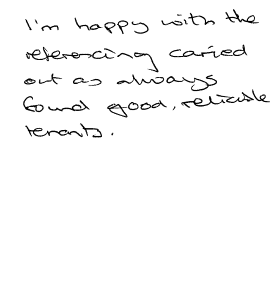 I'm happy with the
referencing carried
out as always
found good, reliable
tenants.